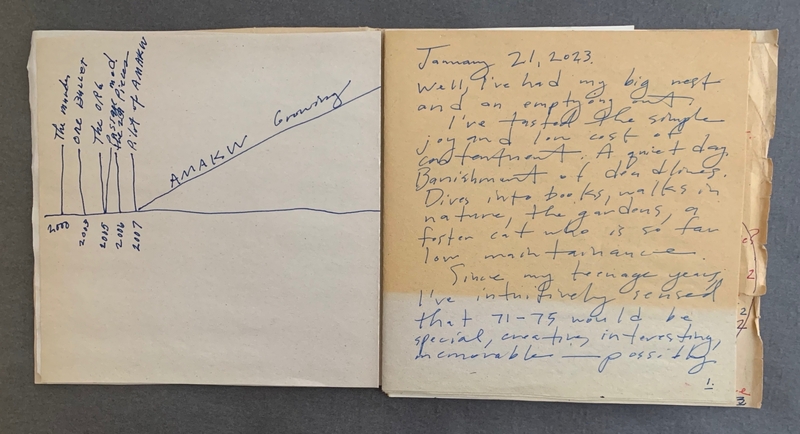 The Murder
ONE BULLET
The ORG
Pieces
Pilot of AMAKW
AMAKW Growing
2005
2006
2007
January 21, 2023.
Well, I've had my big nest
and an emptying out.
I've tasted the simple
joy and low cost of
contentment. A quiet day.
Banishment of deadlines.
Dives into books, walks in
nature, the gardens, a
foster cat who is so far
low maintainance.
Since my teenage years,
I've intuitively sensed
that 71-75 would be
special, creative, interesting,
memorable — possibly
1.